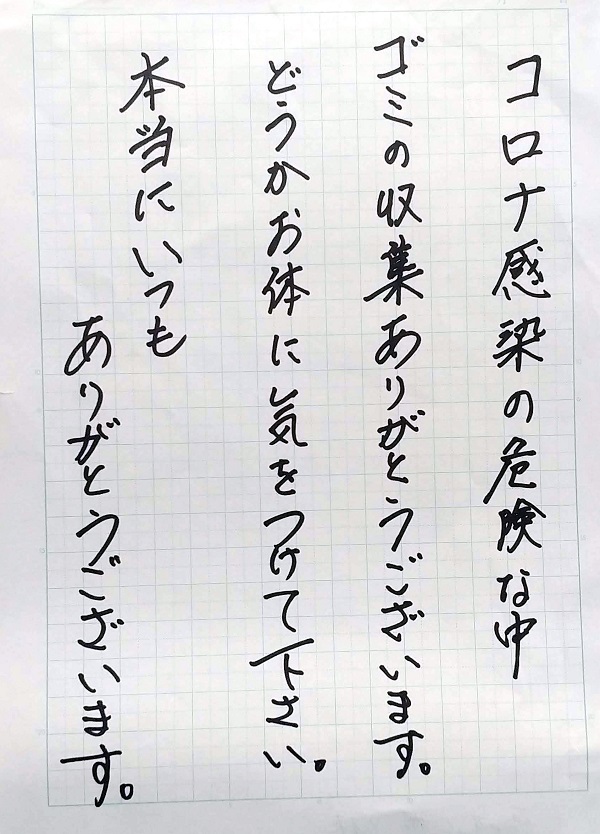 コロナ感染の危険な中
ゴミの収集ありがとうございます。
どうかお体に気をつけて下さい。
本当にいつも
ありがとうございます。